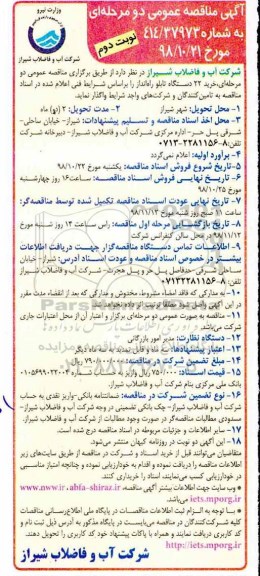 آگهی مناقصه عمومی دو مرحله‌ای
به شماره ۴۱۴/۳۷۹۷۳
مورخ ۹۸/۱۰/۲۱
نوبت دوم
وزارت نیرو
شرکت آب و فاضلاب شیراز
شرکت آب و فاضلاب شیراز در نظر دارد از طریق برگزاری مناقصه عمومی دو
مرحله‌ای، خرید ۲۲ دستگاه تابلو راه‌انداز را براساس شرایط فنی اعلام شده در اسناد
مناقصه به تامین‌کنندگان و شرکت‌های واجد شرایط واگذار نماید.
۱- محل تحویل: شهر شیراز ۲- مدت تحویل: ۲ (دو) ماه
۳- محل اخذ اسناد مناقصه و تسلیم پیشنهادات: شیراز- خیابان ساحلی-
شرقی پل حر- اداره مرکزی شرکت آب و فاضلاب شیراز- دبیرخانه شرکت
تلفن: ۸-۳۲۲۸۱۱۵۶-۰۷۱۳
۴- برآورد اولیه: اعلام نمی‌گردد
۵- تاریخ شروع فروش اسناد مناقصه: یکشنبه مورخ ۹۸/۱۰/۲۲
۶- تاریخ نهایی فروش اسناد مناقصه: ساعت ۱۶ روز چهارشنبه
مورخ ۹۸/۱۰/۲۵
۷- تاریخ نهایی عودت اسناد مناقصه تکمیل شده توسط مناقصه‌گر:
ساعت ۱۱ صبح روز شنبه مورخ ۹۸/۱۱/۱۲
۸- تاریخ بازگشایی مرحله اول مناقصه: راس ساعت ۱۳ روز شنبه مورخ
۹۸/۱۱/۱۲ در محل سالن کنفرانس شرکت
۹- اطلاعات تماس دستگاه مناقصه‌گزار جهت دریافت اطلاعات
بیشتر در خصوص اسناد مناقصه و عودت اسناد: آدرس: شیراز- خیابان
ساحلی شرقی- حدفاصل پل حر و پل هجرت- شرکت آب و فاضلاب شیراز
تلفن: ۸-۳۲۲۸۱۱۵۶-۰۷۱۳
۱۰- به مدارکی که فاقد امضاء، مشروط، مخدوش و مدارکی که بعد از انقضاء مدت مقرر
۱۱- مناقصه به صورت عمومی دو مرحله‌ای برگزار و اعتبار آن از محل اعتبارات جاری
شرکت می‌باشد.
۱۲- دستگاه نظارت: مدیر امور بازرگانی
۱۳- اعتبار پیشنهادها: سه ماه و قابل تمدید به سه ماه دیگر
۱۴- مبلغ تضمین شرکت در مناقصه:
۱۵- قیمت اسناد:
بانک ملی مرکزی بنام شرکت آب و فاضلاب شیراز.
۱۶- نوع تضمین شرکت در مناقصه: ضمانتنامه بانکی- واریز نقدی به حساب
شرکت آب و فاضلاب شیراز- چک بانکی تضمینی در وجه شرکت آب و فاضلاب شیراز-
مسدودی مطالبات مناقصه‌گر در صورت وجود مطالبات از شرکت آب و فاضلاب شیراز.
۱۷- سایر اطلاعات و جزئیات مربوطه در اسناد مناقصه درج شده است.
۱۸- این آگهی دو نوبت در روزنامه کیهان منتشر می‌شود.
متقاضیان می‌توانند قبل از خرید اسناد و شرکت در مناقصه از طریق سایت‌های زیر
اطلاعات مناقصه را دریافت نموده و اقدام به خودارزیابی نموده و چنانچه امتیاز مناسبی
در خودارزیابی کسب می‌نمایند، اسناد را خریداری کنند.
وب سایت جهت اطلاعات بیشتر آگهی مناقصه: www.nww.ir ، abfa-shiraz.ir
iets.mporg.ir می‌باشد.
با توجه به الزام ثبت اطلاعات مناقصات در پایگاه ملی اطلاع‌رسانی مناقصات
کلیه شرکت‌کنندگان در مناقصه می‌بایست در پایگاه مذکور به آدرس ذیل ثبت نام و
کد کاربری دریافت نموده و همراه با پاکات پیشنهاد خود کد کاربری را تحویل دهند.
http://iets.mporg.ir
شرکت آب و فاضلاب شیراز